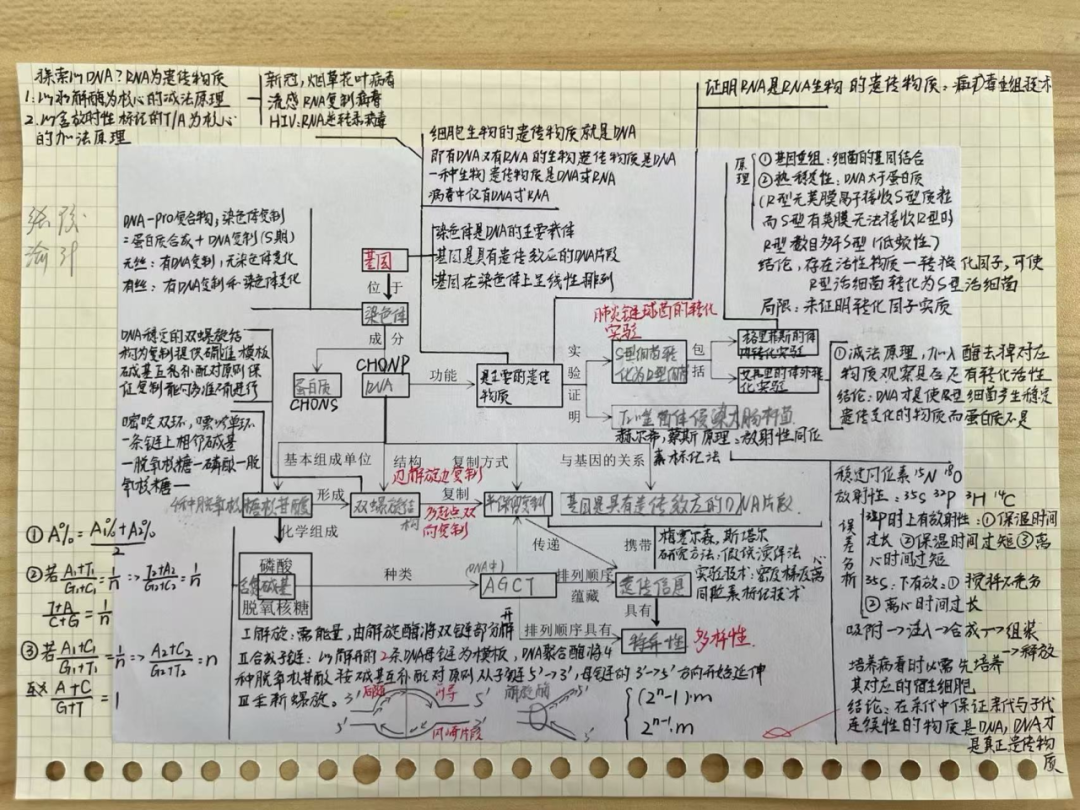 探索以DNA?RNA为遗传物质
1.以水解酶为核心的减法原理
2.以含放射性标记的T/A为核心
的加法原理
新冠,烟草花叶病毒
流感RNA复制病毒
HIV:RNA逆转录病毒
证明RNA是RNA生物的遗传物质:病毒重组技术
细胞生物的遗传物质就是DNA
即有DNA又有RNA的生物遗传物质是DNA
一种生物遗传物质是DNA或RNA
病毒中仅有DNA或RNA
原理
①基因重组:细菌的基因结合
②热稳定性:DNA大于蛋白质
(R型无荚膜易于接收S型质粒
而S型有荚膜无法接收R型的
R型数目多于S型(低频性)
结论,存在活性物质一转化因子,可使
R型活细菌转化为S型活细菌
局限:未证明转化因子实质
DNA-pro复合物,染色体复制
=蛋白质合成+DNA复制(S期)
无丝:有DNA复制,无染色体变化
有丝:有DNA复制和染色体变化
染色体是DNA的主要载体
基因是具有遗传效应的DNA片段
基因在染色体上呈线性排列
基因
位于
染色体
成分
蛋白质
CHONS
CHONP
DNA
功能
是主要的遗传
物质
实验证明
肺炎链球菌的转化
实验
S型细菌转
化为R型细菌
包括
格里菲斯的体
内转化实验
艾弗里的体外转
化实验
T₂噬菌体侵染大肠杆菌
赫尔希,蔡斯 原理:放射性同位
素标记法
①减法原理,加入酶去掉对应
物质观察是否还有转化活性
结论:DNA才是使R型细菌产生稳定
遗传变化的物质而蛋白质不是
DNA稳定的双螺旋结
构为复制提供精准模板
碱基互补配对原则保
证复制能够准确进行
嘌呤双环,嘧啶单环
一条链上相邻碱基
一脱氧核糖一磷酸一脱
氧核糖一
基本组成单位
结构
复制方式
与基因的关系
边解旋边复制
4种脱氧核糖核苷酸
形成
双螺旋结
构
复制
多起点双
向复制
半保留复制
基因是具有遗传效应的DNA片段
化学组成
磷酸
含氮碱基
脱氧核糖
种类
(DNA中)
AGCT
传递
排列顺序
蕴藏
携带
遗传信息
具有
排列顺序具有
特异性
多样性
梅塞尔森,斯塔尔
研究方法:假说演绎法
实验技术:密度梯度离心
同位素标记技术
稳定同位素 ¹⁵N ¹⁸O
放射性:³⁵S ³²P ³H ¹⁴C
误差分析
³²P时上有放射性:①保温时间
过长 ②保温时间过短 ③离
心时间过短
³⁵S:下有放:①搅拌不充分
②离心时间过长
吸附→注入→合成→组装
→释放
培养病毒时必需先培养
其对应的宿主细胞
结论:在亲代中保证亲代与子代
连续性的物质是DNA,DNA才
是真正遗传物
质
①A%=(A₁%+A₂%)/2
②若(A₁+T₁)/(G₁+C₁)=1/n⇒(T₂+A₂)/(G₂+C₂)=1/n
(T+A)/(C+G)=1/n
③若(A₁+C₁)/(G₁+T₁)=1/n⇒(A₂+C₂)/(G₂+T₂)=n
(A+C)/(G+T)=1
I解旋:需能量,由解旋酶将双链部分解开
II合成子链:以解开的2条DNA母链为模板,DNA聚合酶将4
种脱氧核苷酸 按碱基互补配对原则 从子链5'→3',母链的3'→5'方向开始延伸
III重新螺旋。
3' 5' 5' 3' 3' 5' 5' 3'
(2ⁿ-1)·m
2ⁿ⁻¹·m